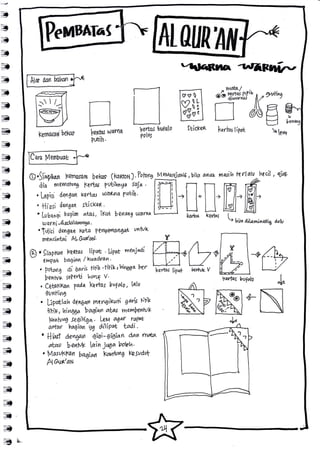 PEMBATAS
AL QUR'AN
WARNA WARNI
Alat dan bahan
kemasan bekas
kertas warna
putih.
kertas bufalo
polos
Sticker
kertas lipat
gunting
benang
lem
Cara Membuat
Siapkan kemasan bekas (karton). Potong Memanjang, bila anak masih terlalu kecil,
dia memotong kertas putihnya saja.
• Lapis dengan kertas warna putih.
• Hiasi dengan sticker.
• Lubangi bagian atas, ikat benang warna
warni
• Tulisi dengan kata penyemangat untuk
mencintai Al Qur'an
karton
kertas
bisa dilaminating dulu
• Siapkan kertas lipat. Lipat menjadi
empat bagian / kuadran.
• Potong di garis titik-titik, hingga ber
bentuk seperti huruf V.
• Cetakkan pada kertas bufalo, lalu
gunting
• Lipatlah dengan mengikuti garis titik
titik, hingga bagian atas membentuk
kantung segitiga. Lem agar rapat
antar bagian yg dilipat tadi.
• Hiasi dengan gigi-gigian dan mata
atau bentuk lain juga boleh.
• Masukkan bagian kantong ke sudut
Al Qur'an
kertas lipat
bentuk V
kertas bufalo
24